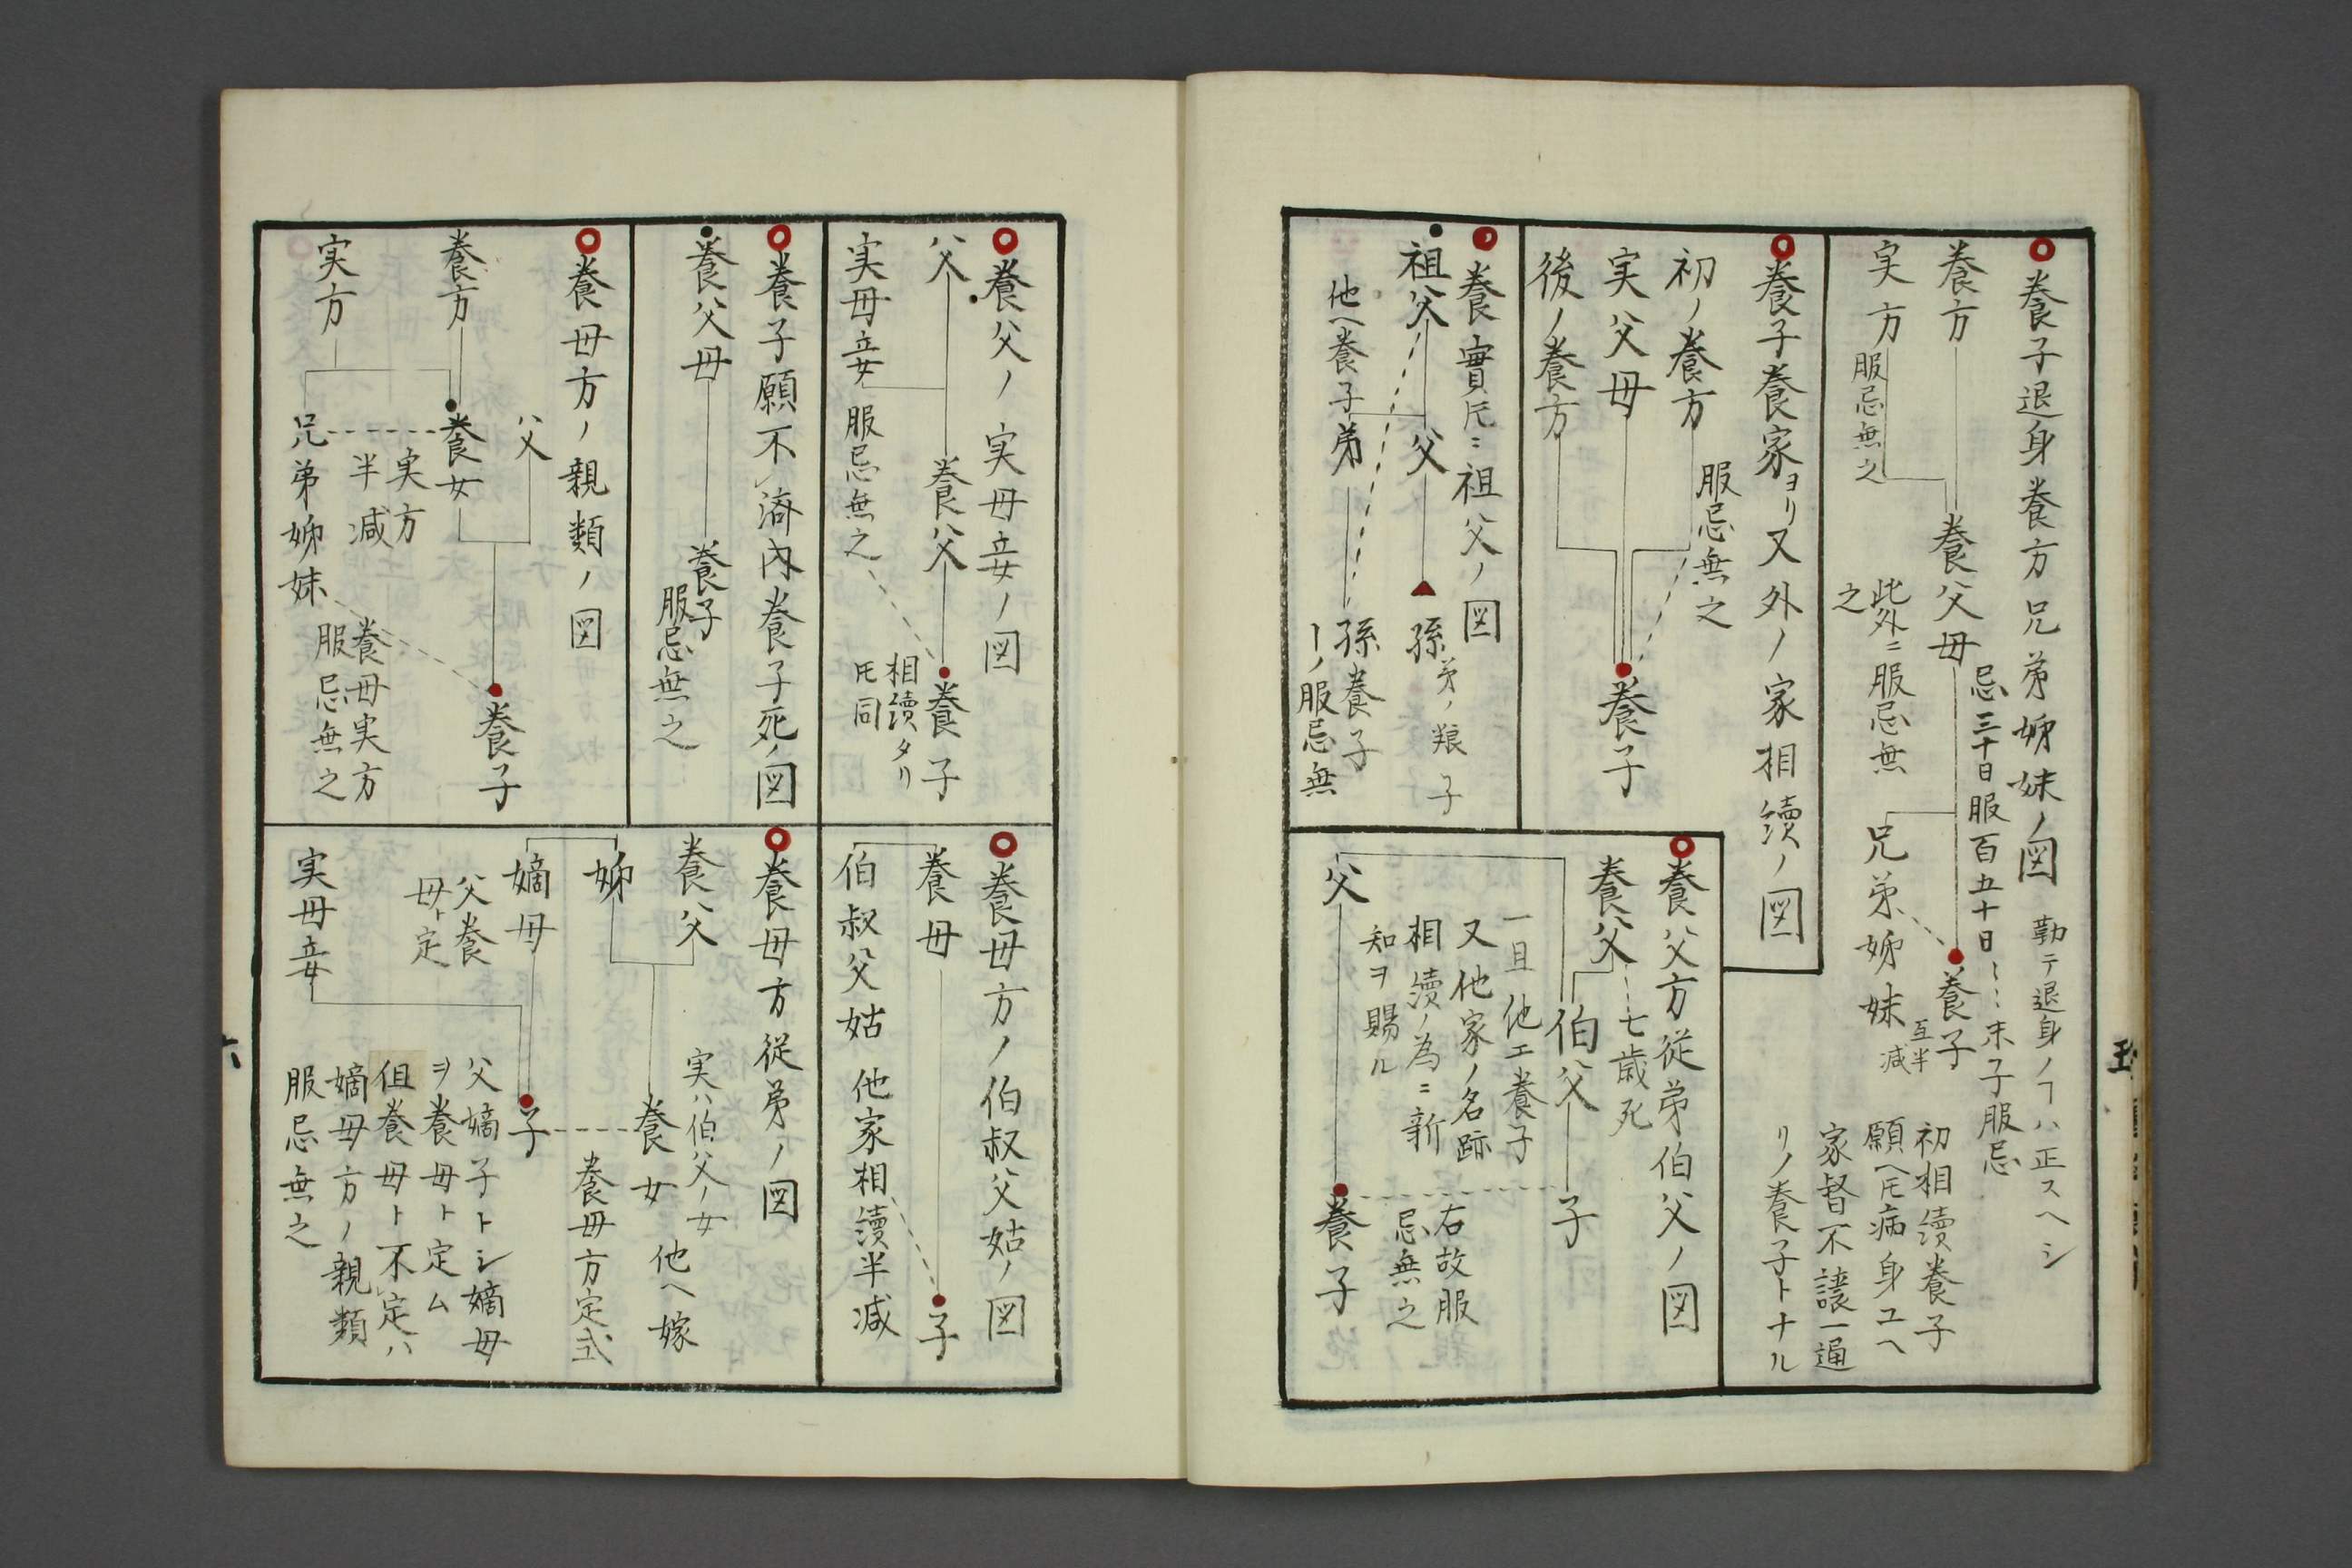 養子退身養方兄弟姉妹ノ図
勤テ退身ノヿハ正スヘシ
養方
養父母
忌三十日服百五十日
末子服忌
養子
実方
服忌無之
此外ニ服忌無
之
兄弟姉妹
互半
減
初相続養子
願ヘ𪜈病身ユヘ
家督不譲一通
リノ養子トナル
養子養家ヨリ又外ノ家相續ノ図
初ノ養方
服忌無之
実父母
後ノ養方
養子
養實𪜈ニ祖父ノ図
祖父
父
孫
弟ノ
子
他ヘ養子
弟
孫
養子
ーノ服忌無
養父方従弟伯父ノ図
養父
七歳死
伯父
子
一旦他エ養子
又他家ノ名跡
相續ノ為ニ新
知ヲ賜ル
右故服
忌無之
父
養子
養父ノ実母妾ノ図
父
養父
養子
相續タリ
𪜈同
実母妾
服忌無之
養子願不済内養子死ノ図
養父母
養子
服忌無之
養母方ノ親類ノ図
父
養方
養女
養子
実方
実方
半減
兄弟姉妹
養母実方
服忌無之
養母方ノ伯叔父姑ノ図
養母
子
伯叔父姑
他家相續半減
養母方従弟ノ図
養父
姉
実ハ伯父ノ女
養女
他ヘ嫁
養母方定式
嫡母
父養
母ト定
子
実母妾
父嫡子トシ嫡母
ヲ養母ト定ム
但養母ト不定ハ
嫡母方ノ親類
服忌無之
六